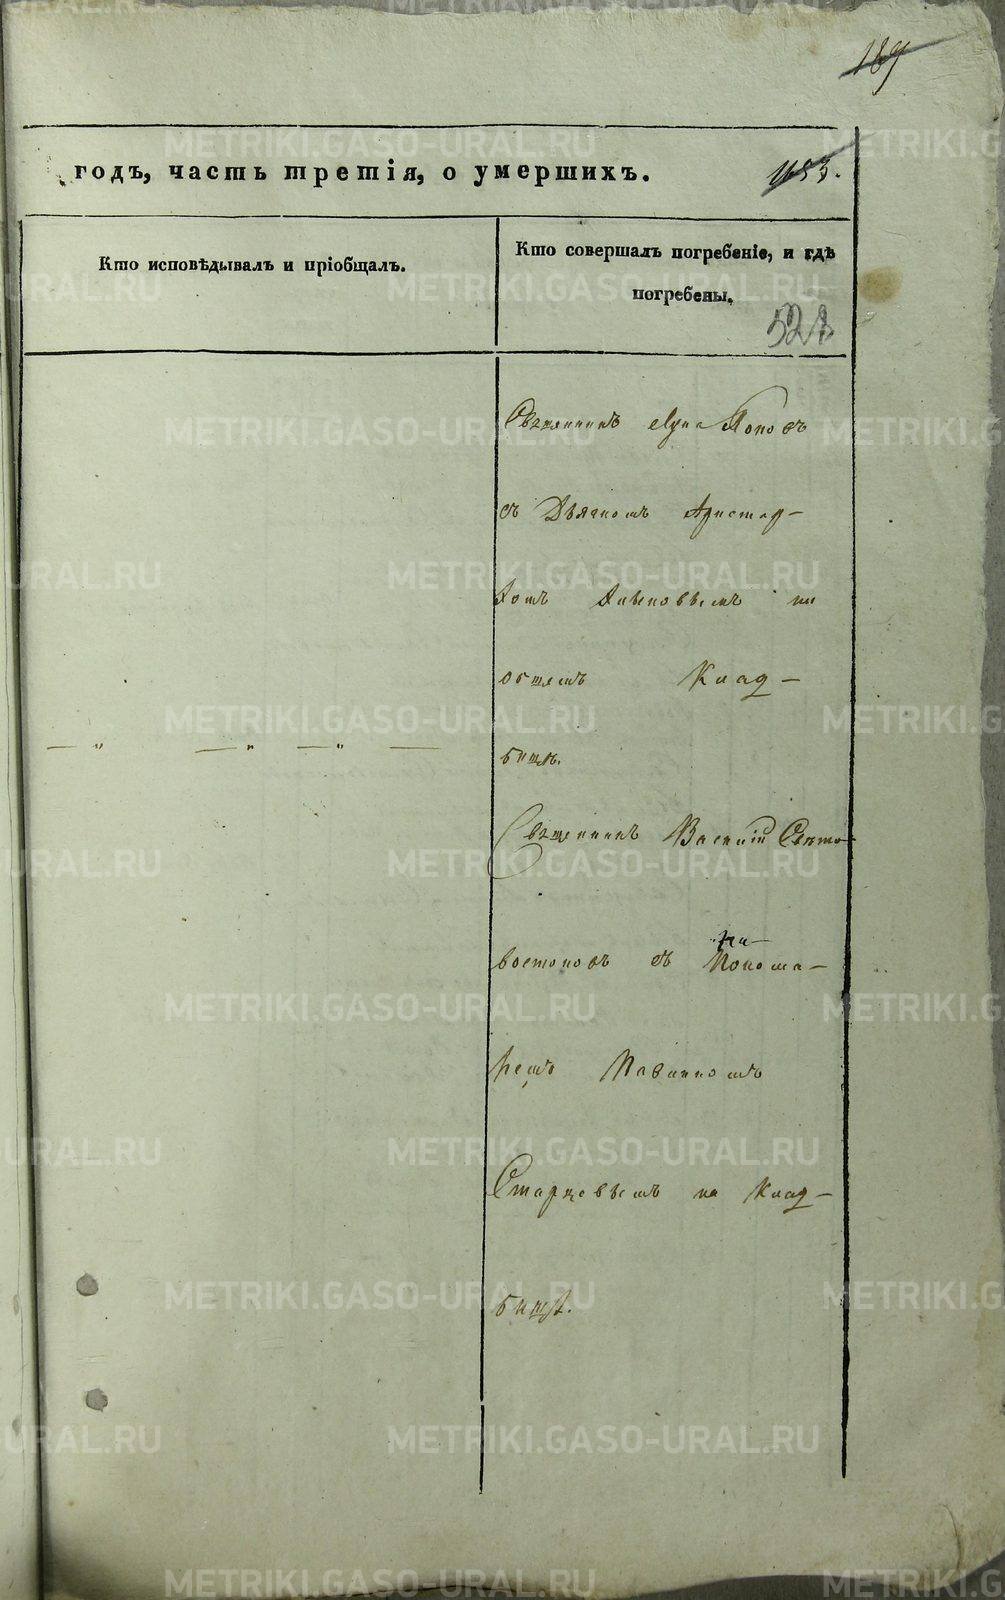 189
годъ, часть третія, о умершихъ.
Кто исповѣдывалъ и пріобщалъ.
Кто совершалъ погребеніе, и гдѣ
погребены.
Священникъ Лука Поповъ
съ Дьякомъ Аристар-
хомъ на
общемъ Клад-
бищѣ.
— „ — „ — „ —
Священникъ Василій Свѣто-
востоковъ съ
Понома-
ремъ
Старцевымъ на Клад-
бищѣ.
METRIKI.GASO-URAL.RU